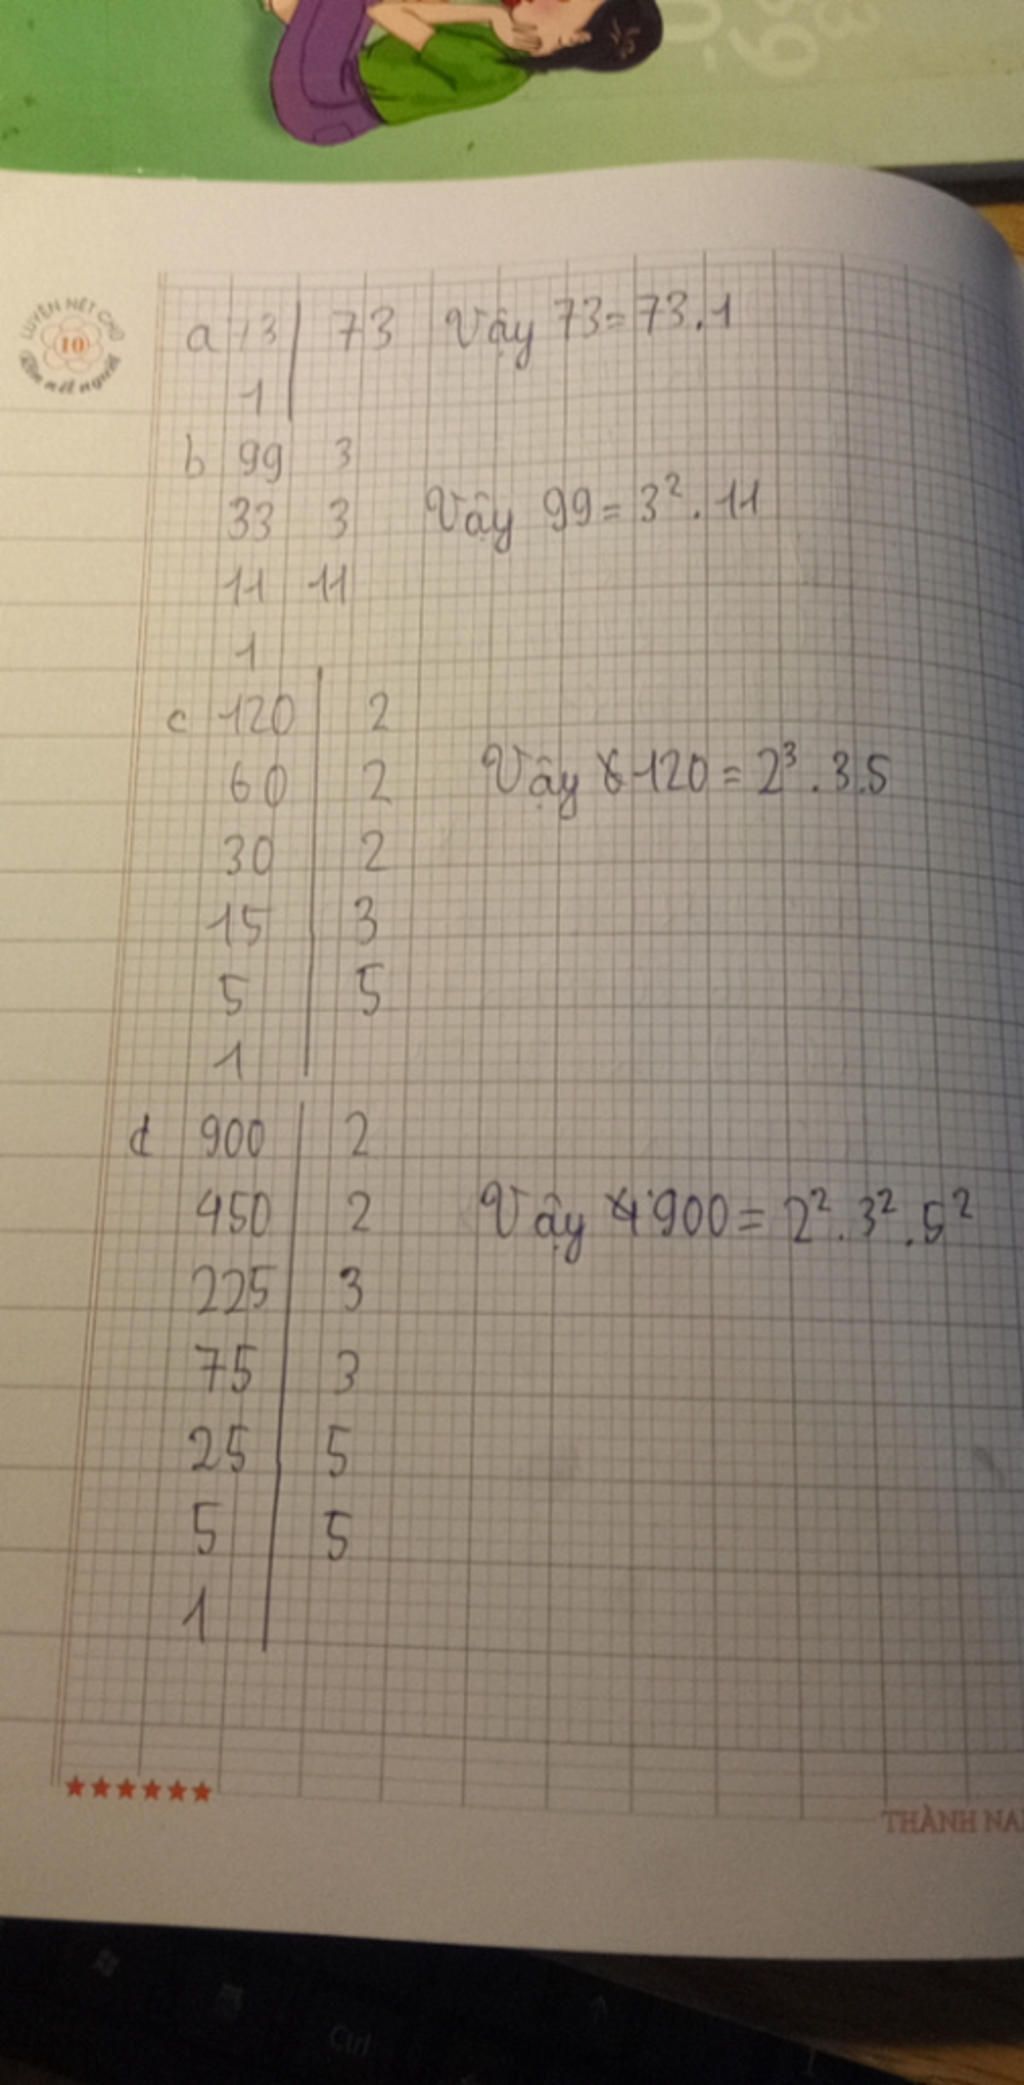 LUYỆN NÉT CHỮ
10
Rèn nết người
a 73 73 Vậy 73 = 73.1
1
b 99 3
33 3 Vậy 99 = 3². 11
11 11
1
c 120 2
60 2 Vậy 120 = 2³. 3.5
30 2
15 3
5 5
1
d 900 2
450 2 Vậy 900 = 2². 3². 5²
225 3
75 3
25 5
5 5
1
THÀNH NA
Ctrl